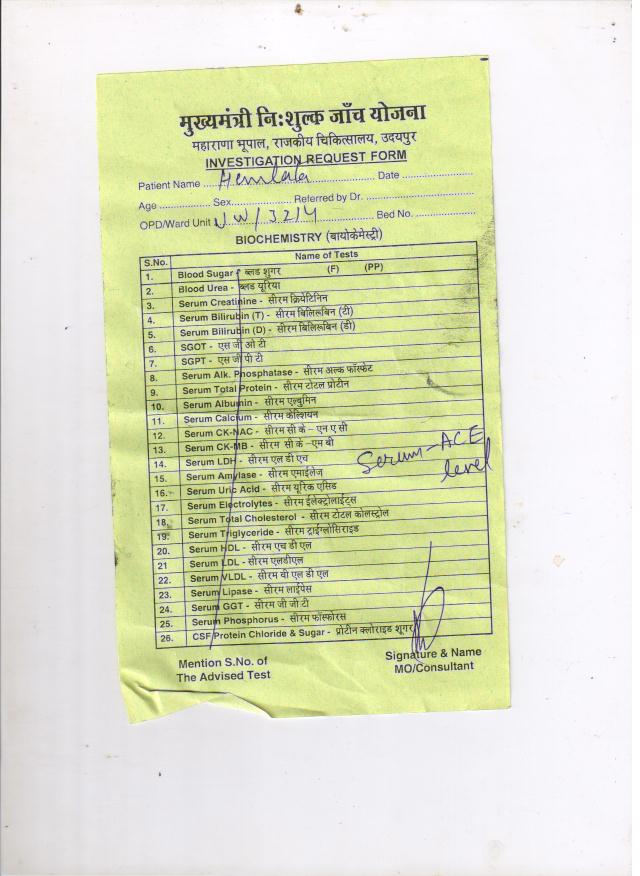 मुख्यमंत्री नि:शुल्क जाँच योजना
महाराणा भूपाल, राजकीय चिकित्सालय, उदयपुर
INVESTIGATION REQUEST FORM
Patient Name ..... Hemlata ..... Date .....
Age ..... Sex..... Referred by Dr. .....
OPD/Ward Unit ..... Bed No. .....
BIOCHEMISTRY (बायोकेमेस्ट्री)
S.No. Name of Tests
1. Blood Sugar - ब्लड शुगर (F) (PP)
2. Blood Urea - ब्लड यूरिया
3. Serum Creatinine - सीरम क्रियेटिनिन
4. Serum Bilirubin (T) - सीरम बिलिरूबिन (टी)
5. Serum Bilirubin (D) - सीरम बिलिरूबिन (डी)
6. SGOT - एस जी ओ टी
7. SGPT - एस जी पी टी
8. Serum Alk. Phosphatase - सीरम अल्क फॉस्फेट
9. Serum Total Protein - सीरम टोटल प्रोटीन
10. Serum Albumin - सीरम एल्बुमिन
11. Serum Calcium - सीरम केल्शियन
12. Serum CK-NAC - सीरम सी के – एन ए सी
13. Serum CK-MB - सीरम सी के –एम बी
14. Serum LDH - सीरम एल डी एच
15. Serum Amylase - सीरम एमाईलेज
16. Serum Uric Acid - सीरम यूरिक एसिड
17. Serum Electrolytes - सीरम ईलेक्ट्रोलाईट्स
18. Serum Total Cholesterol - सीरम टोटल कोलस्ट्रोल
19. Serum Triglyceride - सीरम ट्राईग्लोसिराइड
20. Serum HDL - सीरम एच डी एल
21 Serum LDL - सीरम एलडीएल
22. Serum VLDL - सीरम वी एल डी एल
23. Serum Lipase - सीरम लाईपेस
24. Serum GGT - सीरम जी जी टी
25. Serum Phosphorus - सीरम फॉस्फोरस
26. CSF Protein Chloride & Sugar - प्रोटीन क्लोराइड शूगर
Serum-ACE
level
Mention S.No. of
The Advised Test
Signature & Name
MO/Consultant